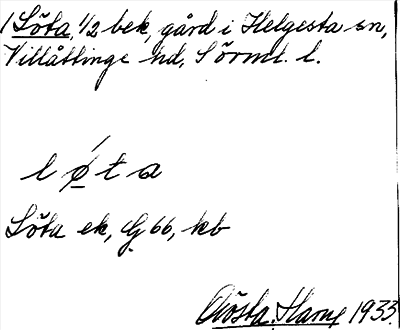 1 Löta, 1/2 bek, gård i Helgesta sn,
Villåttinge hd, Sörml. l.
l ǿ t a
Löta ek, G 66, kb
Gösta Harne 1933.